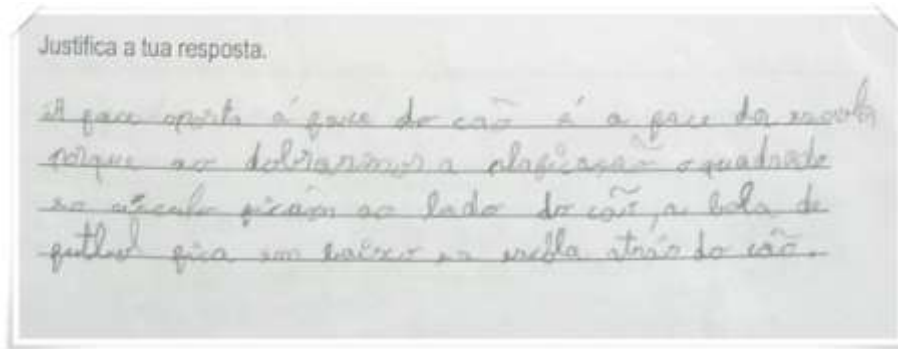 Justifica a tua resposta.
A face oposta á face do cão é a face da escola
porque ao dobrarmos a plaficação o quadrado
e o circulo ficam ao lado do cão, a bola de
futbol fica em baixo e a escola atrás do cão.